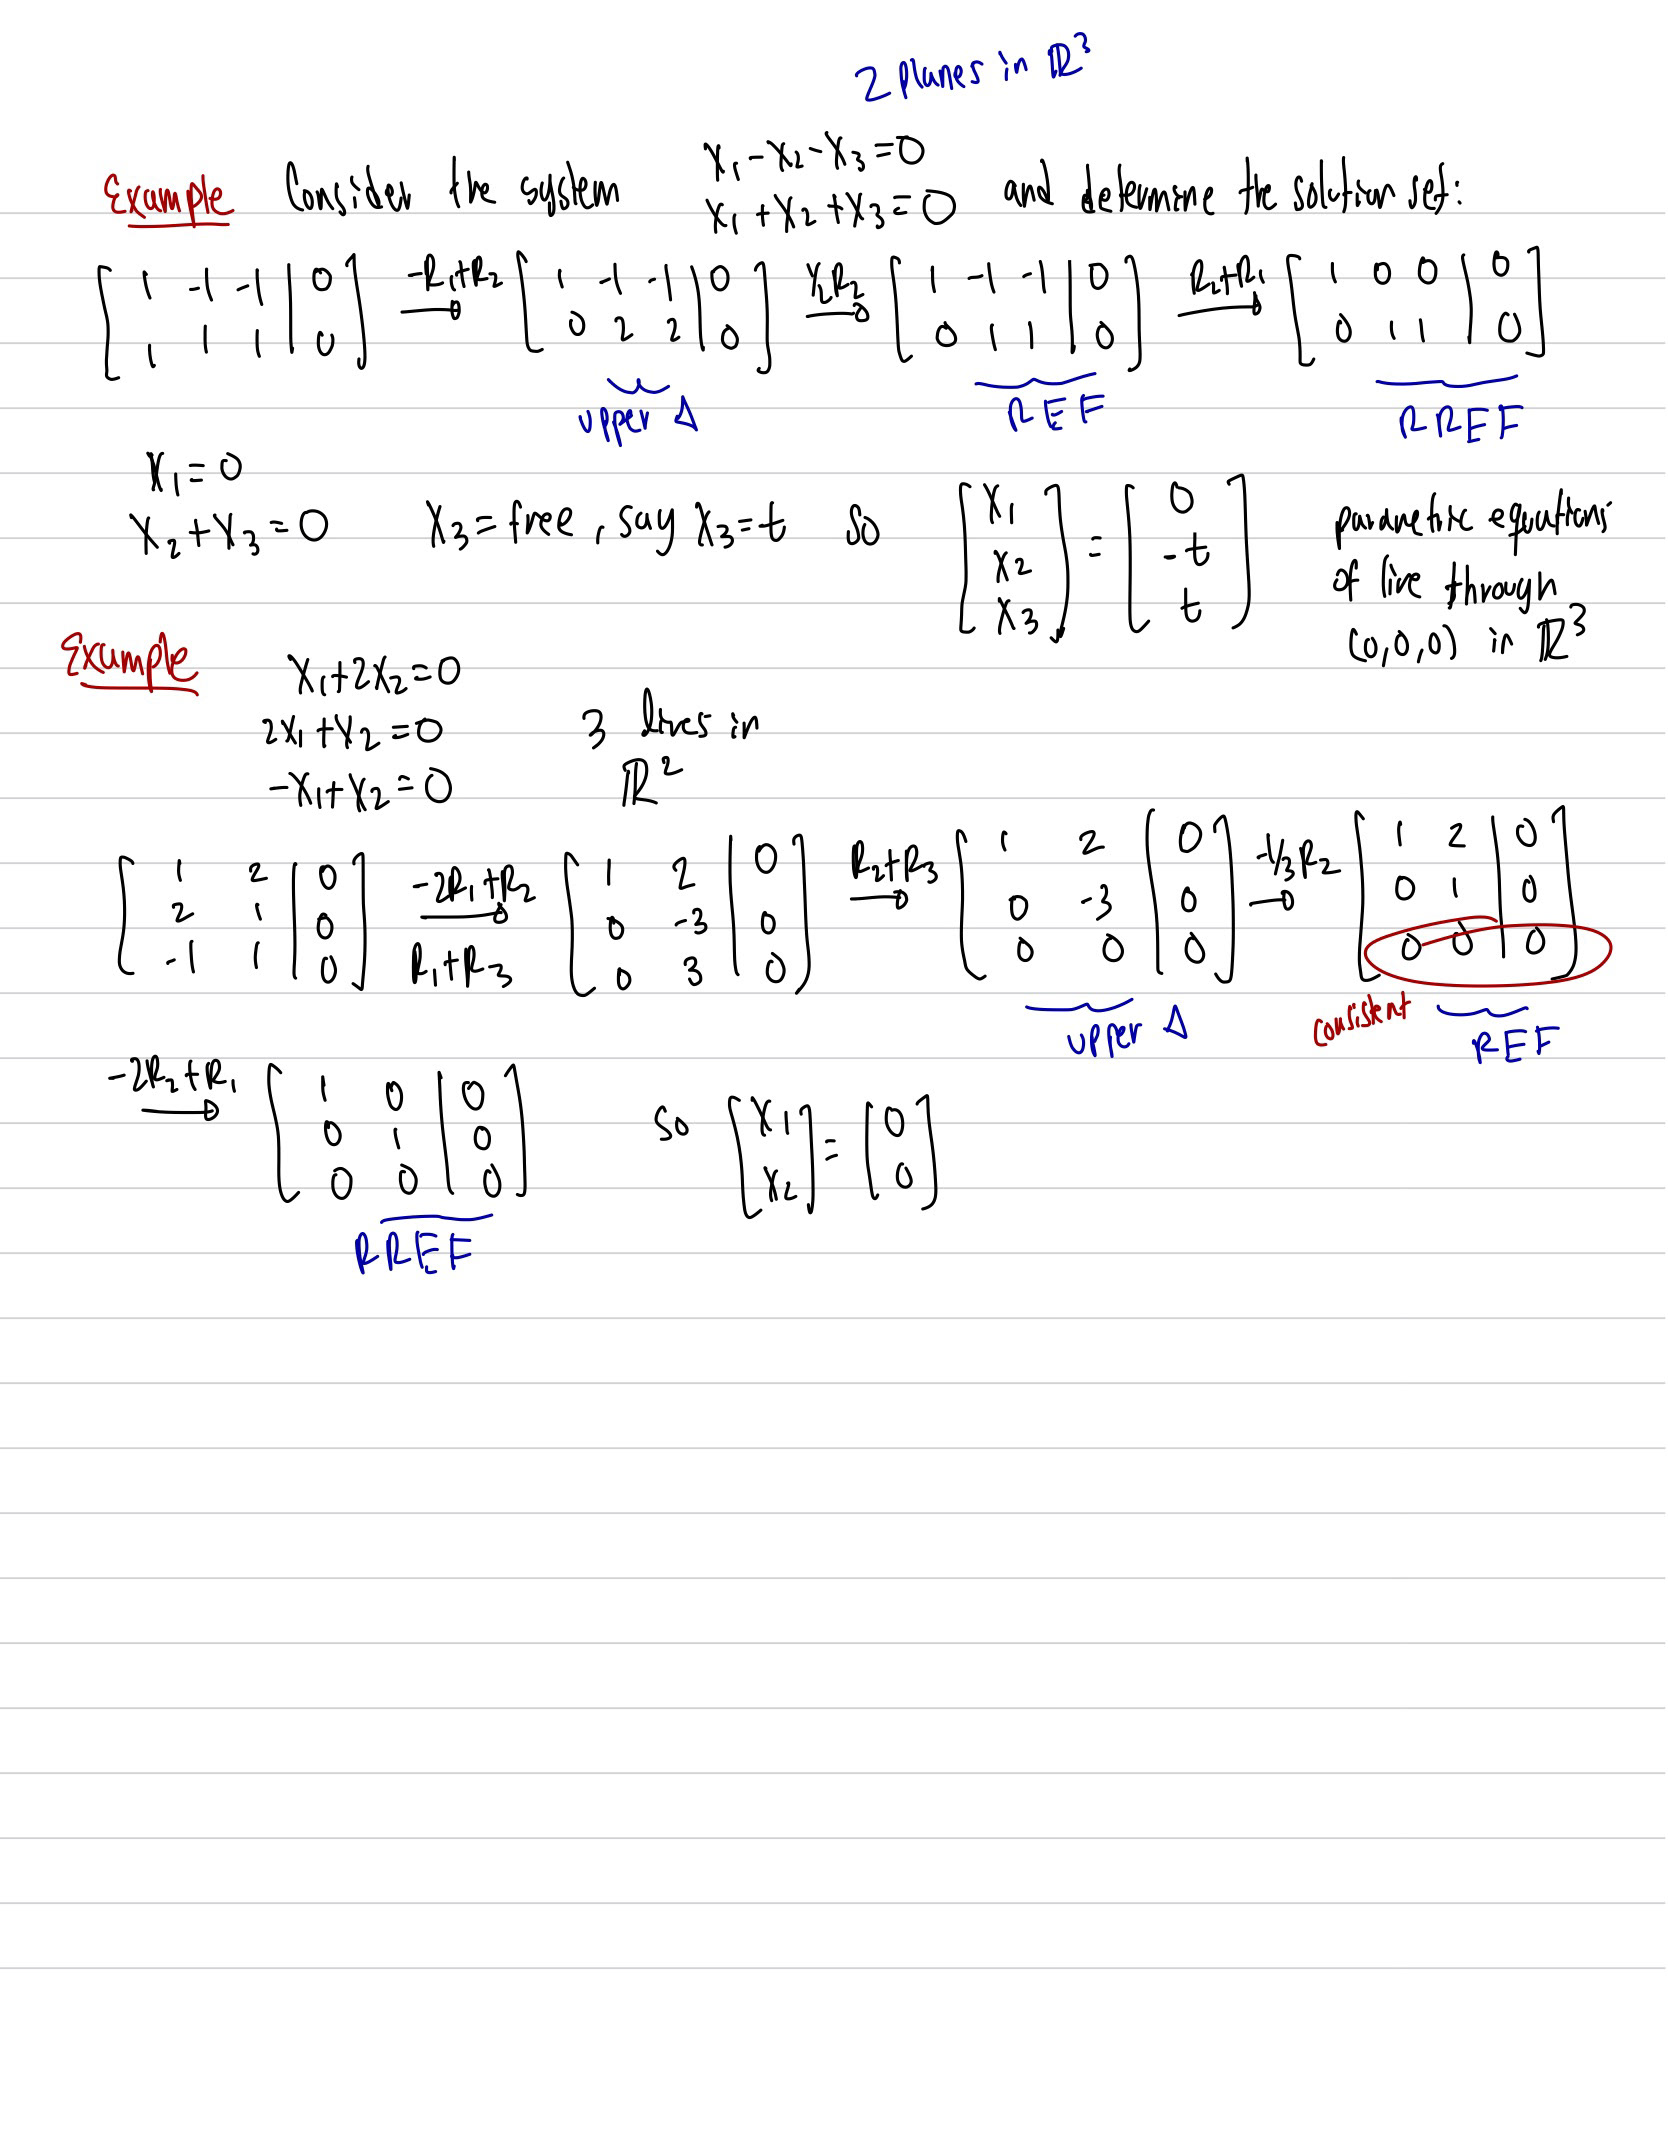 2 planes in ℝ³
Example Consider the system x₁-x₂-x₃=0 and determine the solution set:
x₁+x₂+x₃=0
[1 -1 -1 | 0] -R₁+R₂ → [1 -1 -1 | 0] ½R₂ → [1 -1 -1 | 0] R₂+R₁ → [1 0 0 | 0]
[1 1 1 | 0] [0 2 2 | 0] [0 1 1 | 0] [0 1 1 | 0]
upper Δ REF RREF
x₁=0
x₂+x₃=0 x₃=free, say x₃=t so [x₁ x₂ x₃] = [0 -t t] parametric equations
of line through
(0,0,0) in ℝ³
Example x₁+2x₂=0
2x₁+x₂=0 3 lines in
-x₁+x₂=0 ℝ²
[1 2 | 0] -2R₁+R₂ → [1 2 | 0] R₂+R₃ → [1 2 | 0] -1/3R₂ → [1 2 | 0]
[2 1 | 0] R₁+R₃ [0 -3 | 0] [0 -3 | 0] [0 1 | 0]
[-1 1 | 0] [0 3 | 0] [0 0 | 0] [0 0 | 0]
upper Δ consistent REF
-2R₂+R₁ → [1 0 | 0] so [x₁] = [0]
[0 1 | 0] [x₂] [0]
[0 0 | 0]
RREF